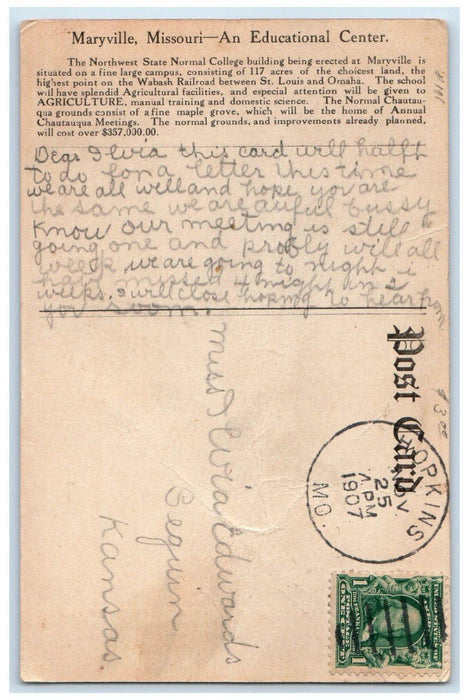 Maryville, Missouri—An Educational Center.
The Northwest State Normal College building being erected at Maryville is
situated on a fine large campus, consisting of 117 acres of the choicest land, the
highest point on the Wabash Railroad between St. Louis and Omaha. The school
will have splendid Agricultural facilities, and especial attention will be given to
AGRICULTURE, manual training and domestic science. The Normal Chautau-
qua grounds consist of a fine maple grove, which will be the home of Annual
Chautauqua Meetings. The normal grounds, and improvements already planned,
will cost over $357,000.00.
Dear Ilvia this card will hafft
to do for a letter this time
we are all well and hope you are
the same we are auful bussy
know our meeting is still
going one and probly will all
week we are going to night i
have missed 4 night in 2
weeks. I will close hoping to hear from
you soom.
Post Card
$3.00
HOPKINS
NOV
25
PM
1907
MO.
Miss Ilvia Edwards
Seguin
Kansas.
UNITED STATES OF
1
FRANKLIN
1
POSTAGE
ONE CENT